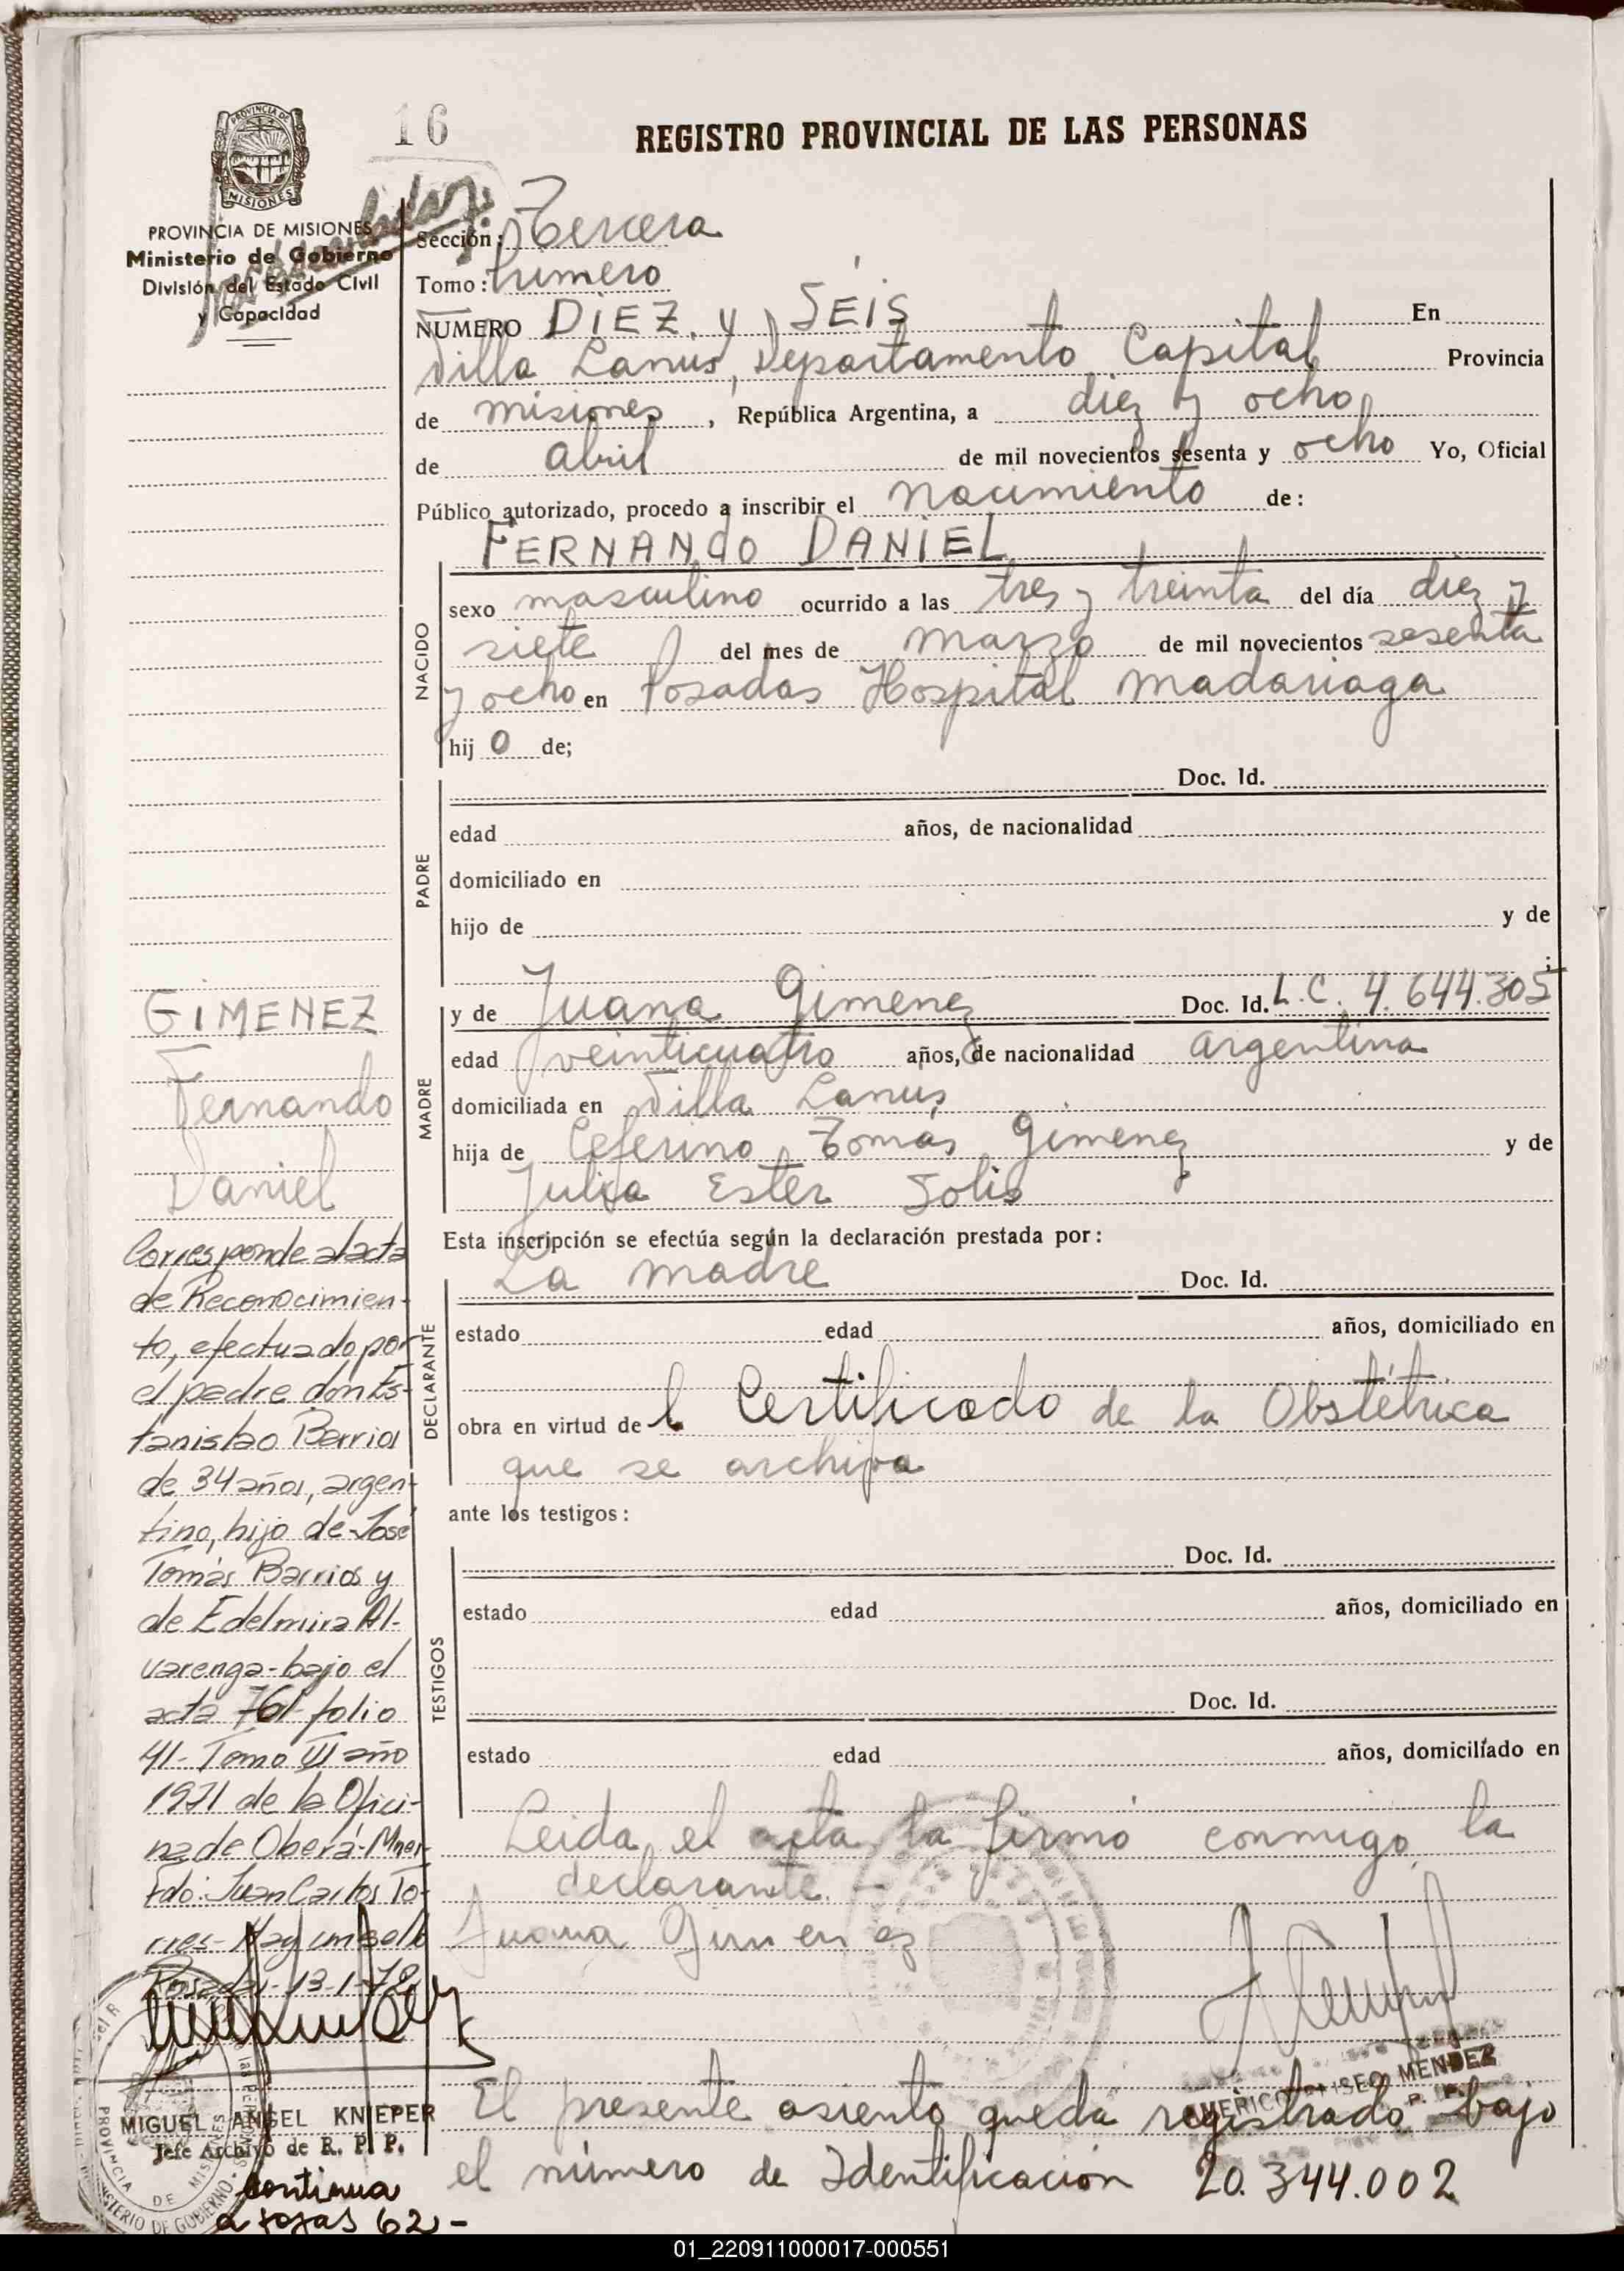 PROVINCIA DE
MISIONES
16
REGISTRO PROVINCIAL DE LAS PERSONAS
PROVINCIA DE MISIONES
Ministerio de Gobierno
División del Estado Civil
y Capacidad
Sección: Tercera
Tomo: Primero
NUMERO DIEZ y SEIS En
Villa Lanús, Departamento Capital Provincia
de misiones, República Argentina, a diez y ocho
de abril de mil novecientos sesenta y ocho Yo, Oficial
Público autorizado, procedo a inscribir el nacimiento de:
FERNANdO DANIEL
NACIDO
sexo masculino ocurrido a las tres y treinta del día diez y
siete del mes de marzo de mil novecientos sesenta
y ocho en Posadas Hospital Madariaga
hij o de;
PADRE
Doc. Id.
edad años, de nacionalidad
domiciliado en
hijo de y de
;
MADRE
y de Juana Gimenez Doc. Id. L.C. 4.644.305
edad veinticuatro años, de nacionalidad argentina
domiciliada en Villa Lanus
hija de Ceferino Tomás Gimenez y de
Julia Ester Solis
Esta inscripción se efectúa según la declaración prestada por:
DECLARANTE
La madre Doc. Id.
estado edad años, domiciliado en
obra en virtud de l Certificado de la Obstétrica
que se archiva
ante los testigos:
TESTIGOS
Doc. Id.
estado edad años, domiciliado en
Doc. Id.
estado edad años, domiciliado en
Leida el acta la firmó conmigo la
declarante. —
Juana Gimenez
AMERICO ELISEO MENDEZ
El presente asiento queda registrado bajo
el número de Identificación 20.344.002
GIMENEZ
Fernando
Daniel
Corresponde al acta
de Reconocimien-
to, efectuado por
el padre don Es-
tanislao Barrios
de 34 años, argen-
tino, hijo de José
Tomás Barrios y
de Edelmira Al-
varenga - bajo el
acta 761 folio
41- Tomo III año
1971 de la Ofici-
na de Oberá-Mnes-
Fdo: Juan Carlos To-
rres- Hay un sello
Posadas- 13-1-72
MIGUEL ANGEL KNIEPER
Jefe Archivo de R. P. P.
PROVINCIA DE MISIONES
MINISTERIO DE GOBIERNO
continua
a fojas 62 -
01_220911000017-000551